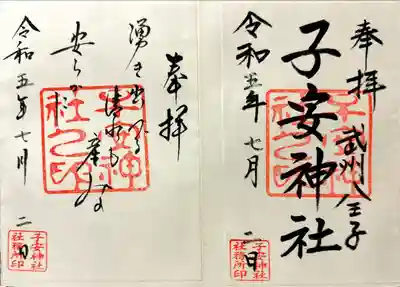 奉拝
武州八王子
子安神社
令和五年七月
二日
子安神社之印
子安神社
社務所印
奉拝
湧き出づる
清水も
安らか
令和五年七月
二日
子安神社之印
子安神社
社務所印